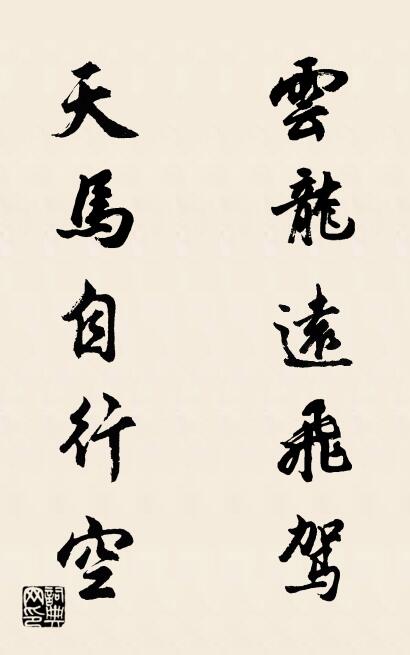 雲龍遠飛駕
天馬自行空
詞典網印